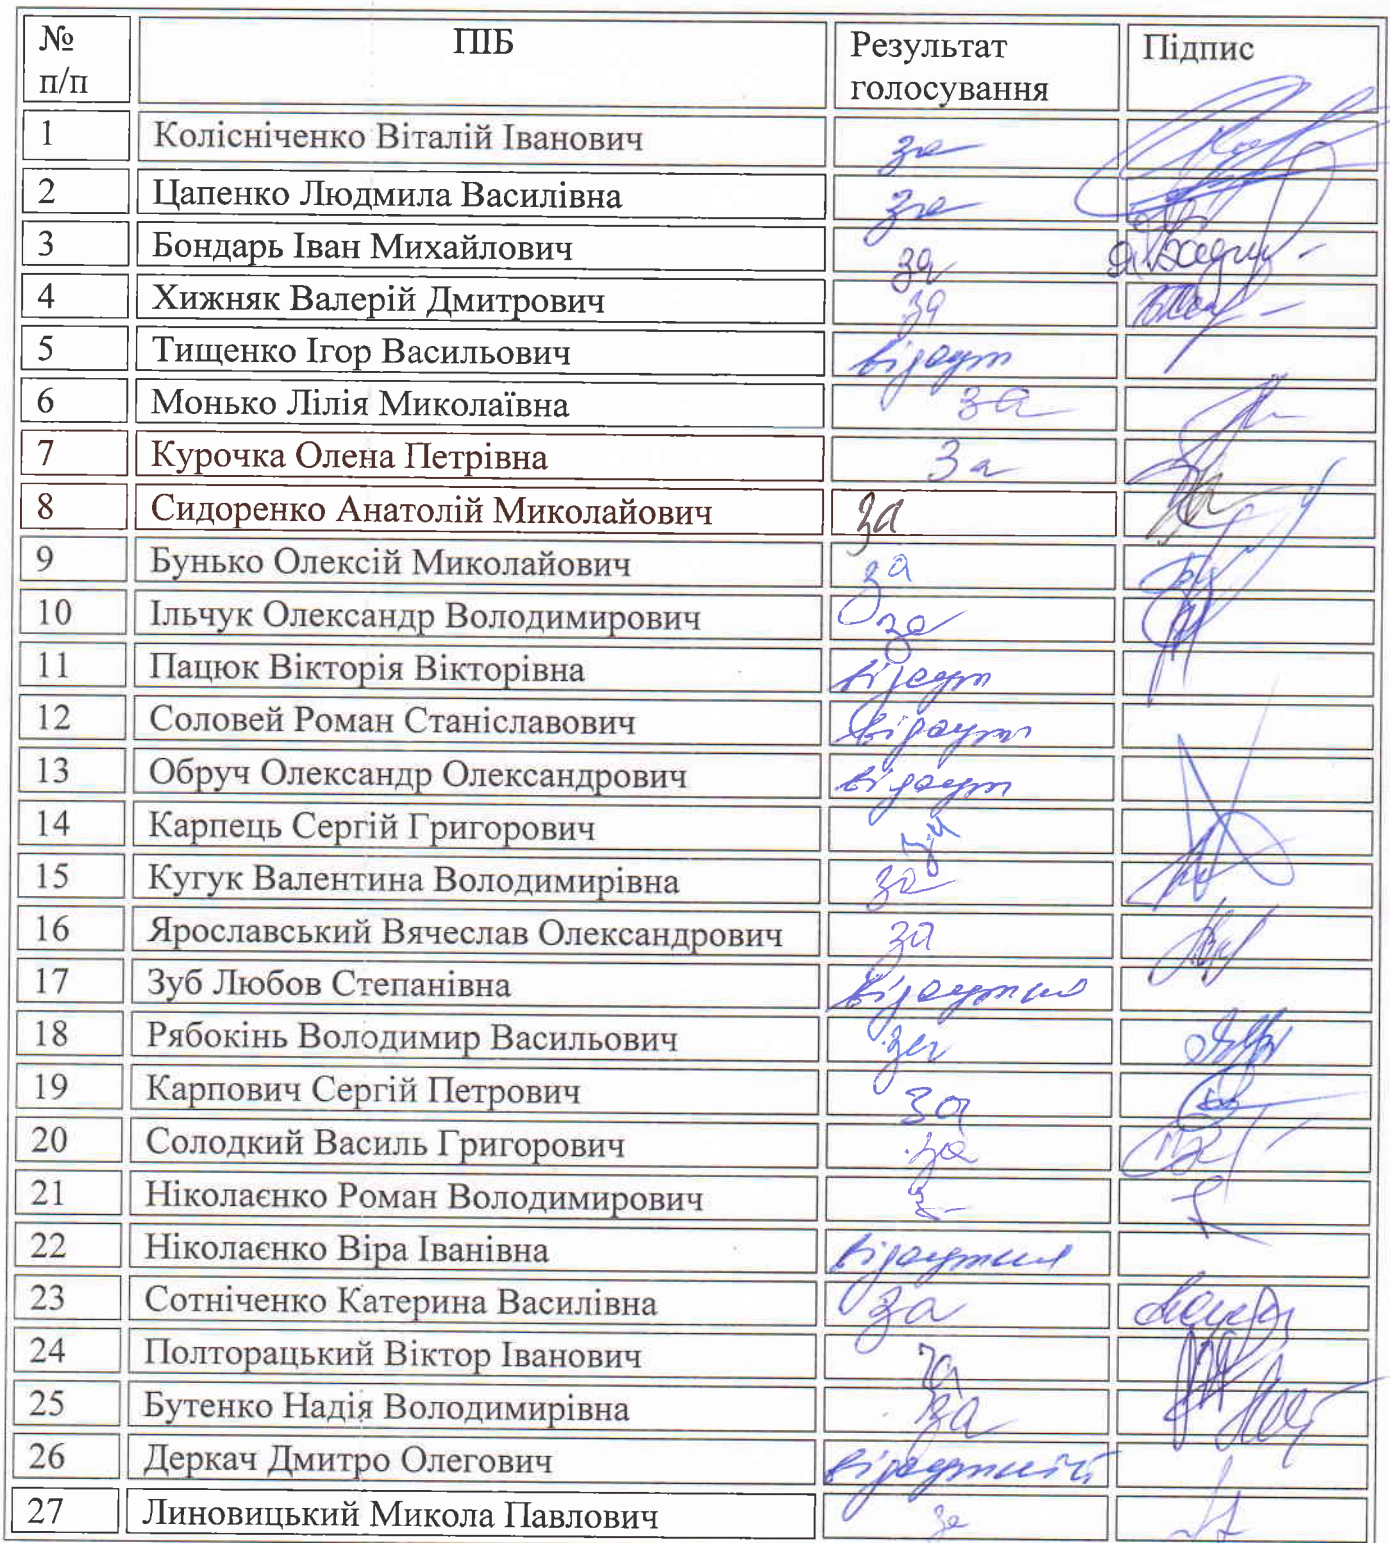 № п/п ПІБ Результат голосування Підпис
1 Колісніченко Віталій Іванович за
2 Цапенко Людмила Василівна за
3 Бондарь Іван Михайлович за
4 Хижняк Валерій Дмитрович за
5 Тищенко Ігор Васильович відсут
6 Монько Лілія Миколаївна за
7 Курочка Олена Петрівна За
8 Сидоренко Анатолій Миколайович за
9 Бунько Олексій Миколайович за
10 Ільчук Олександр Володимирович за
11 Пацюк Вікторія Вікторівна відсут
12 Соловей Роман Станіславович відсут
13 Обруч Олександр Олександрович відсут
14 Карпець Сергій Григорович за
15 Кугук Валентина Володимирівна за
16 Ярославський Вячеслав Олександрович за
17 Зуб Любов Степанівна відсутня
18 Рябокінь Володимир Васильович за
19 Карпович Сергій Петрович за
20 Солодкий Василь Григорович за
21 Ніколаєнко Роман Володимирович
22 Ніколаєнко Віра Іванівна відсутня
23 Сотніченко Катерина Василівна за
24 Полторацький Віктор Іванович за
25 Бутенко Надія Володимирівна за
26 Деркач Дмитро Олегович відсутній
27 Линовицький Микола Павлович за